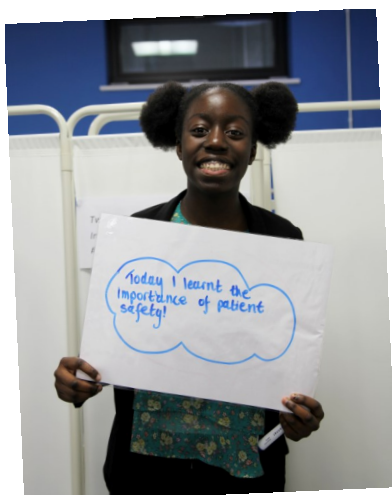 Today I learnt the
importance of patient
safety!